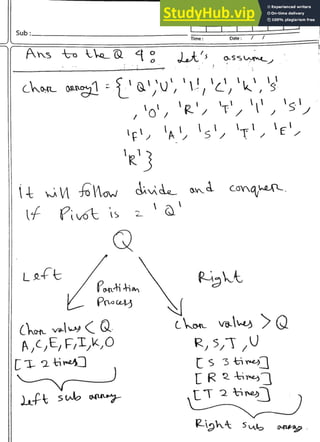 StudyHub.vip
Experienced writers
Delivery on time
100% plagiarism free
Sub :
Time : Date : / /
Ans to the Q 4 : Let's assume,
char array1 = { 'Q', 'U', 'I', 'C', 'K', 'S'
, 'O', 'R', 'T', 'I', 'S',
'F', 'A', 'S', 'T', 'E',
'R' }
it will follow divide and conquer.
If Pivot is = 'Q'
Q
Left
Partition
Process
Right
Char values < Q
A, C, E, F, I, K, O
[I 2 times]
Left sub array
Char values > Q
R, S, T, U
[S 3 times]
[R 2 times]
[T 2 times]
Right sub array.